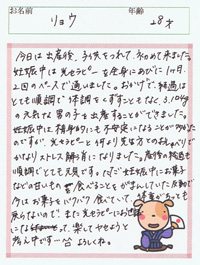 お名前
年齢
リョウ
28才
今日は出産後、子供をつれて、初めて来ました。
妊娠中は光セラピーを全身にあびに1ヶ月
2回のペースで通いました。おかげで、経過は
とても順調で体調をくずすこともなく、3,100g
の元気な男の子を出産することができました。
妊娠中は精神的にも不安定になることが
のですが、光セラピーと何より先生方とのおしゃべりで
かなりストレス解消になりました。産後の経過も
順調でとても元気です。ただ、妊娠中にお菓子
などの甘いものを食べることをがまんしていた反動で
今はお菓子をバクバク食べていて、体重が
戻らないので、また光セラピーにお世話
になって、楽してやせようと
よろしくね。